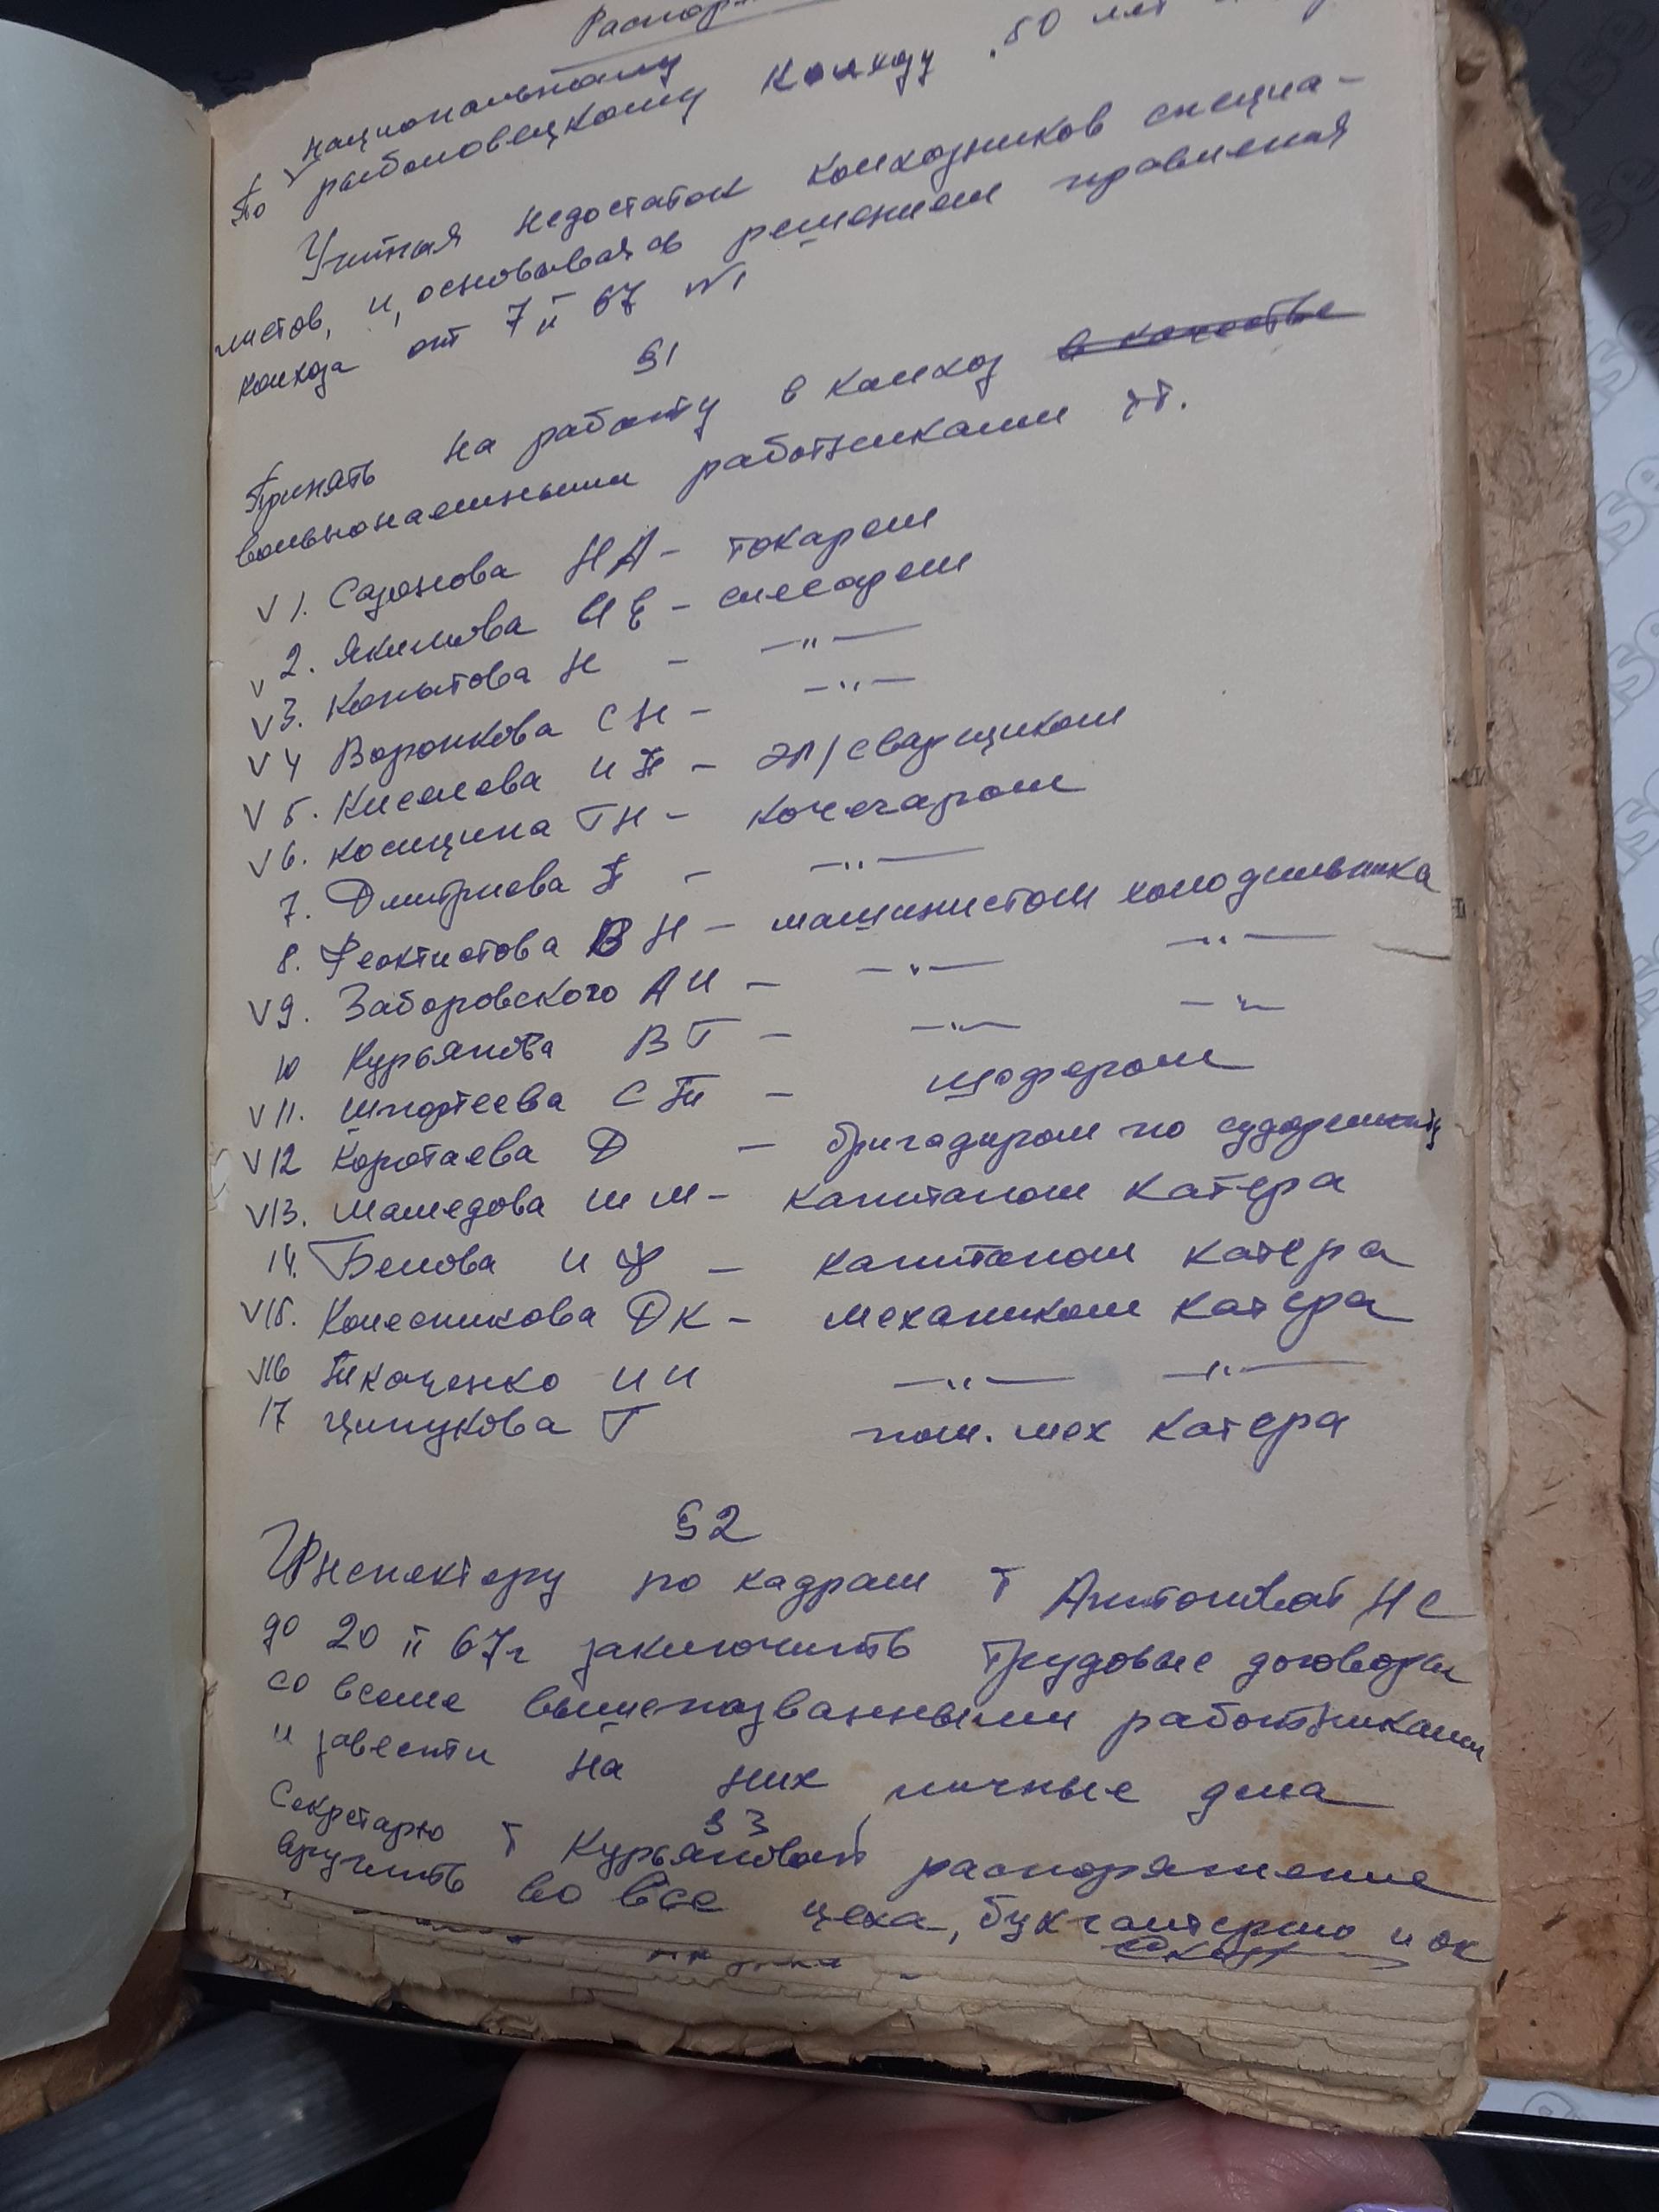 национальному
По рыболовецкому колхозу "50 лет
Учитывая недостаток колхозников специа-
листов, и, основываясь решением правления
колхоза от 7 II 67 №1
§1
Принять на работу в колхоз в качестве
вольнонаемными работниками тт.
V 1. Сазонова НА - токарем
V 2. Якимова И Е - слесарем
V 3. Копытова Н - -"-
V 4 Воронкова С Н - -"-
V 5. Киселева И П - эл/сварщиком
V 6. Косицина Г Н - кочегаром
7. Дмитриева П - -"-
8. Феоктистова В Н - машинистом холодильника
V 9. Заборовского А И - -"- -"-
10 Курьянова В Г - -"- -"-
V 11. Шпортеева С П - шофером
V 12 Коротаева Д - бригадиром по судоремонту
V 13. Мамедова М М - капитаном катера
14. Белова И Ф - капитаном катера
V 15. Колесникова Д К - механиком катера
V 16 Ткаченко И И -"- -"-
17 Ципукова Г пом. мех катера
§2
Инспектору по кадрам т Антоновой Н С
до 20 II 67г заключить трудовые договоры
со всеми вышеназванными работниками
и завести на них личные дела
§3
Секретарю т Курьяновой распоряжение
вручить во все цеха, бухгалтерию и ок